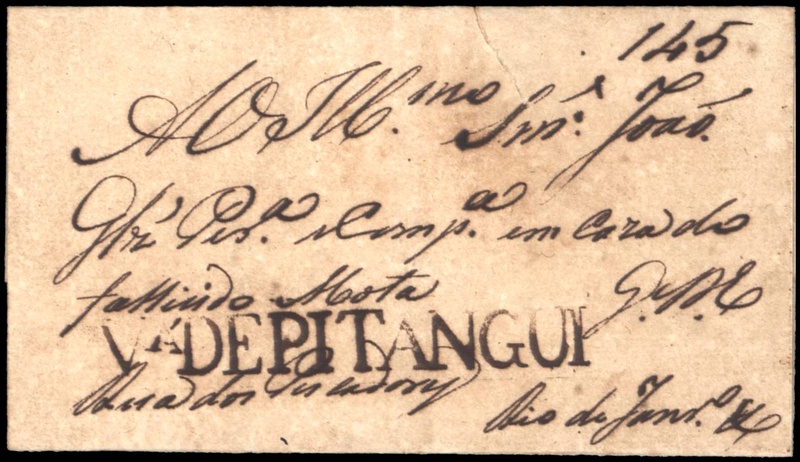 145
AO Ill.mo Snr. João
Glz Per.a e Comp.a em caza do
fallecido Mota G. D. E
VA DE PITANGUI
Rua dos Pescadores
Rio de Janr.o